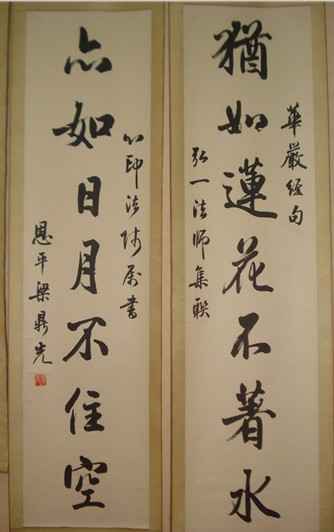 華嚴經句
猶如蓮花不著水
弘一法師集聯
心印法师属書
亦如日月不住空
恩平梁鼎光